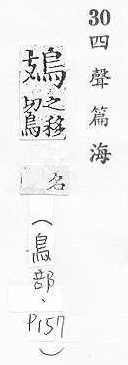 30 四聲篇海
鳷 之移切鳥名
(鳥部、P157)